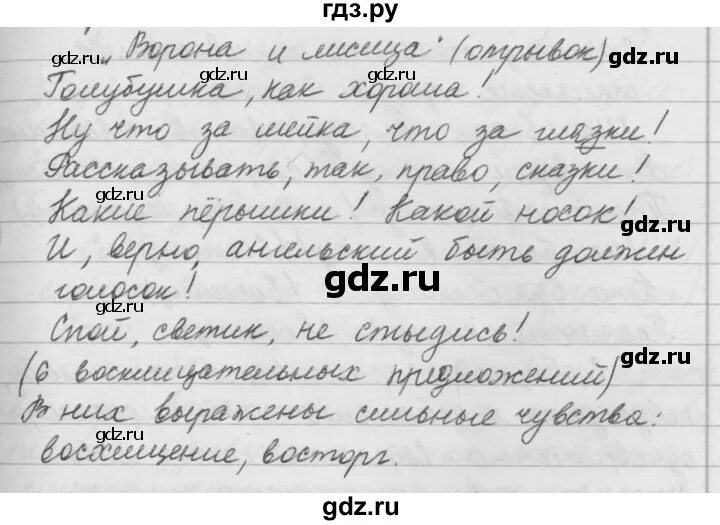 гдз.ру
„Ворона и лисица“ (отрывок)
Голубушка, как хороша!
Ну что за шейка, что за глазки!
Рассказывать, так, право, сказки!
Какие пёрышки! Какой носок!
И, верно, ангельский быть должен
голосок!
Спой, светик, не стыдись!
(6 восклицательных предложений)
В них выражены сильные чувства:
восхищение, восторг.
gdz.ru
gdz.ru
gdz.ru
gdz.ru
gdz.ru
gdz.ru
gdz.ru
gdz.ru
gdz.ru
gdz.ru